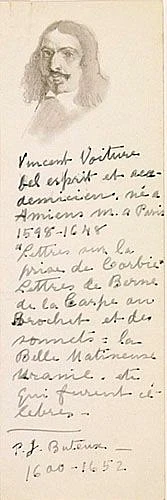 Vincent Voiture
bel esprit et aca-
demicien. né a
Amiens m. a Paris
1598-1648
"Lettres sur la
prise de Corbie"
Lettres de Berne
de la Carpe au
Brochet et des
sonnets = la
Belle Matineuse
Uranie. etc
qui furent cé-
lebres -
P. J. Buteux -
1600-1652